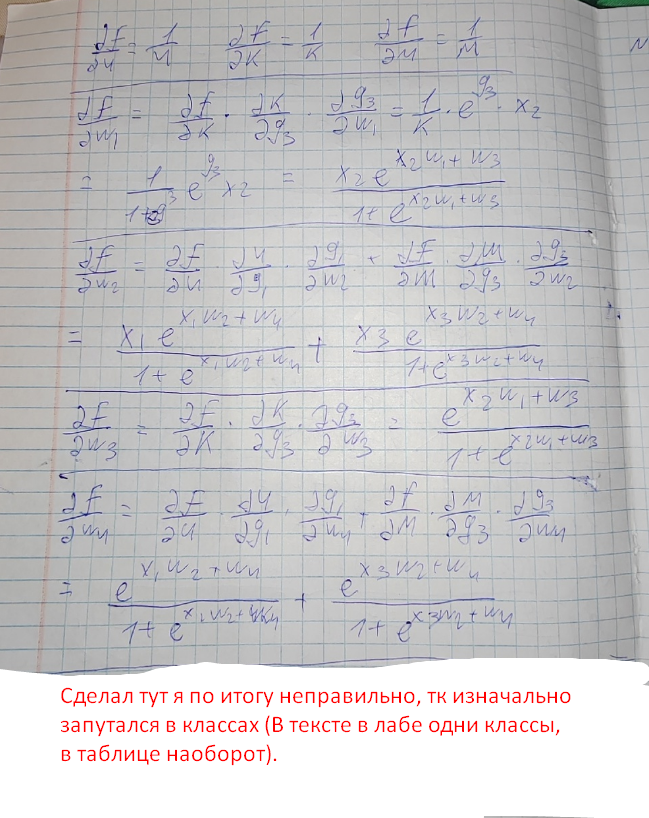 ∂f/∂ч = 1/ч ∂f/∂K = 1/K ∂f/∂M = 1/M
∂f/∂w₁ = ∂f/∂K · ∂K/∂g₃ · ∂g₃/∂w₁ = 1/K · e^g₃ · x₂
= 1/(1+e^g₃) e^g₃ x₂ = x₂ e^(x₂w₁+w₃) / (1+e^(x₂w₁+w₃))
∂f/∂w₂ = ∂f/∂ч · ∂ч/∂g₁ · ∂g₁/∂w₂ + ∂f/∂M · ∂M/∂g₃ · ∂g₃/∂w₂
= x₁ e^(x₁w₂+w₄) / (1+e^(x₁w₂+w₄)) + x₃ e^(x₃w₂+w₄) / (1+e^(x₃w₂+w₄))
∂f/∂w₃ = ∂f/∂K · ∂K/∂g₃ · ∂g₃/∂w₃ = e^(x₂w₁+w₃) / (1+e^(x₂w₁+w₃))
∂f/∂w₄ = ∂f/∂ч · ∂ч/∂g₁ · ∂g₁/∂w₄ + ∂f/∂M · ∂M/∂g₃ · ∂g₃/∂w₄
= e^(x₁w₂+w₄) / (1+e^(x₁w₂+w₄)) + e^(x₃w₂+w₄) / (1+e^(x₃w₂+w₄))
Сделал тут я по итогу неправильно, тк изначально
запутался в классах (В тексте в лабе одни классы,
в таблице наоборот).